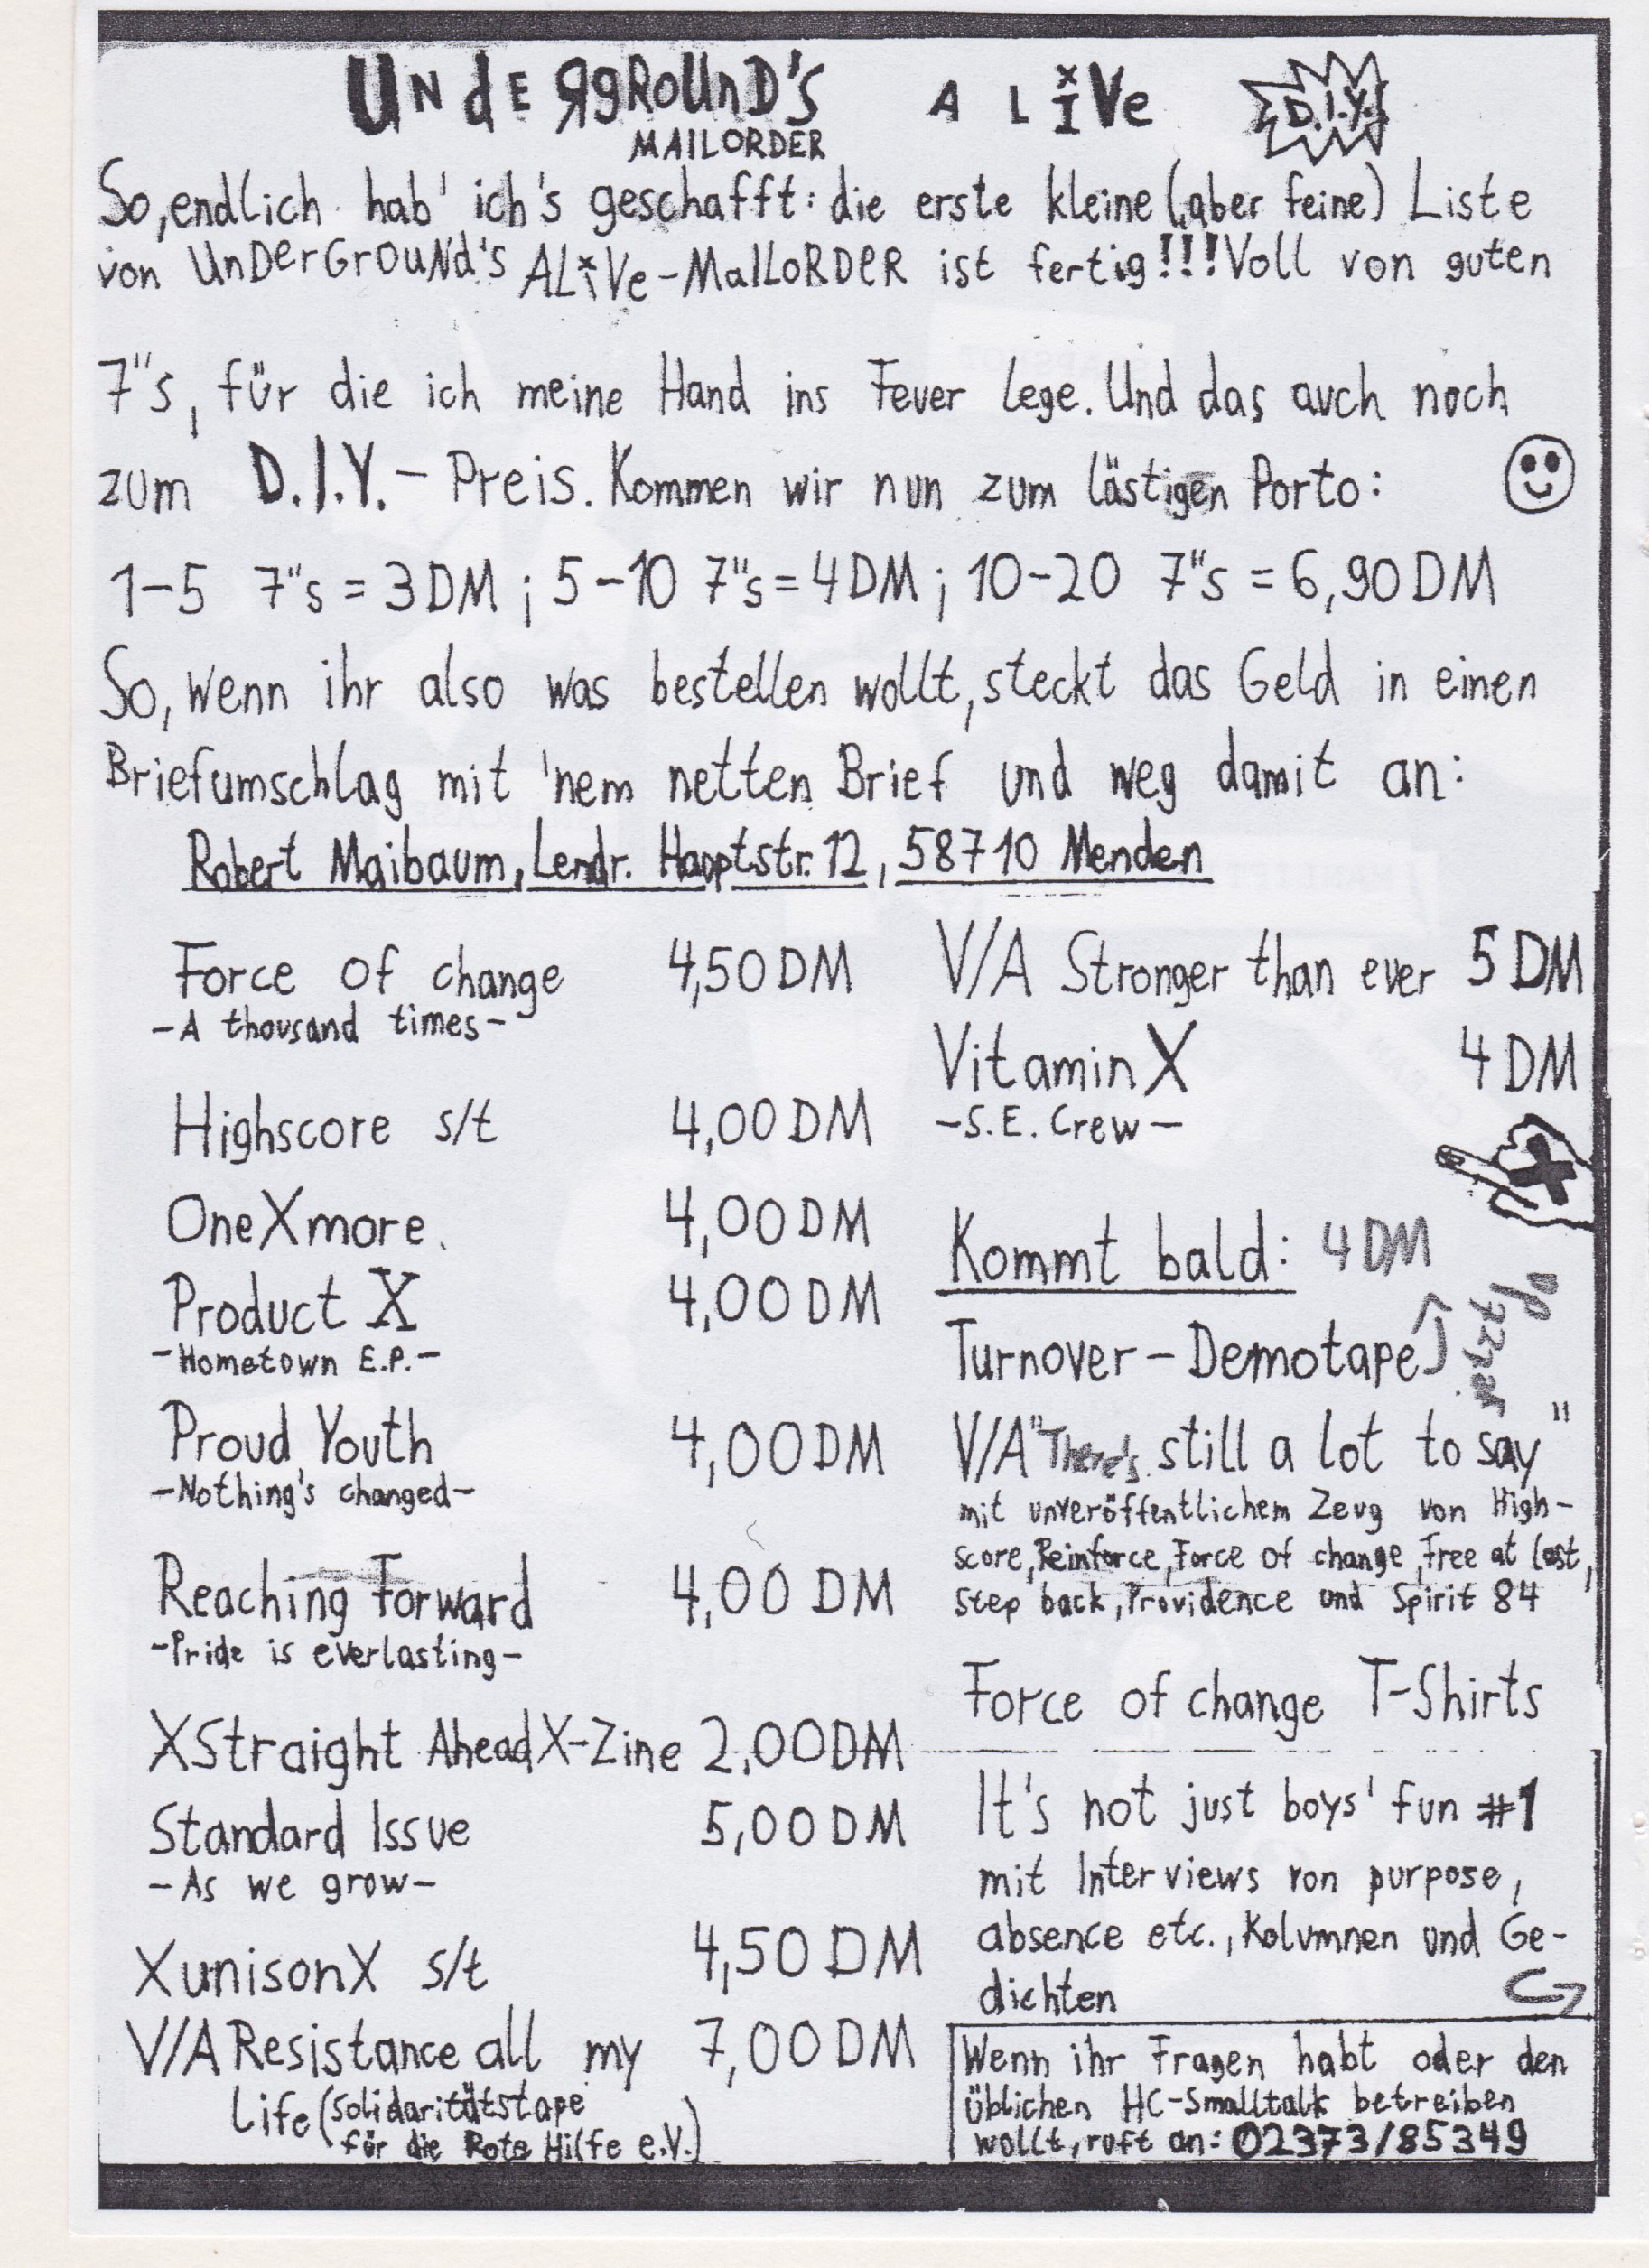 UNdERgROUnD's ALiVe D.I.Y.
MAILORDER
So, endlich hab' ich's geschafft: die erste kleine (aber feine) Liste
von UnDerGrouNd's ALiVe-MaILoRDeR ist fertig!!! Voll von guten
7"s, für die ich meine Hand ins Feuer lege. Und das auch noch
zum D.I.Y. - Preis. Kommen wir nun zum lästigen Porto:
1-5 7"s = 3 DM ; 5-10 7"s = 4 DM ; 10-20 7"s = 6,90 DM
So, wenn ihr also was bestellen wollt, steckt das Geld in einen
Briefumschlag mit 'nem netten Brief und weg damit an:
Robert Maibaum, Lendr. Hauptstr. 12, 58710 Menden
Force of change 4,50 DM
-A thousand times-
Highscore s/t 4,00 DM
OneXmore. 4,00 DM
Product X 4,00 DM
-Hometown E.P.-
Proud Youth 4,00 DM
-Nothing's changed-
Reaching Forward 4,00 DM
-Pride is everlasting-
XStraight AheadX-Zine 2,00 DM
Standard Issue 5,00 DM
-As we grow-
XunisonX s/t 4,50 DM
V/A Resistance all my 7,00 DM
Life (Solidaritätstape
für die Rote Hilfe e.V.)
V/A Stronger than ever 5 DM
VitaminX 4 DM
-S.E. Crew-
Kommt bald: 4 DM
Turnover - Demotape
V/A "There's still a lot to say"
mit unveröffentlichem Zeug von High-
score, Reinforce, Force of change, Free at last,
Step back, Providence und Spirit 84
Force of change T-Shirts
It's not just boys' fun #1
mit Interviews von purpose,
absence etc., Kolumnen und Ge-
dichten
Wenn ihr Fragen habt oder den
üblichen HC-Smalltalk betreiben
wollt, ruft an: 02373/85349